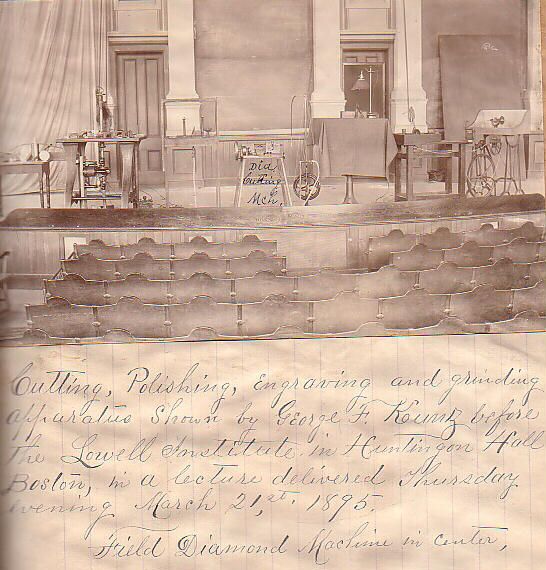 Dia.
Cutting
Mch,
Cutting, Polishing, Engraving and grinding
apparatus shown by George F. Kuntz before
the Lowell Institute in Huntingon Hall
Boston, in a lecture delivered Thursday
evening March 21,st. 1895.
Field Diamond Machine in center,